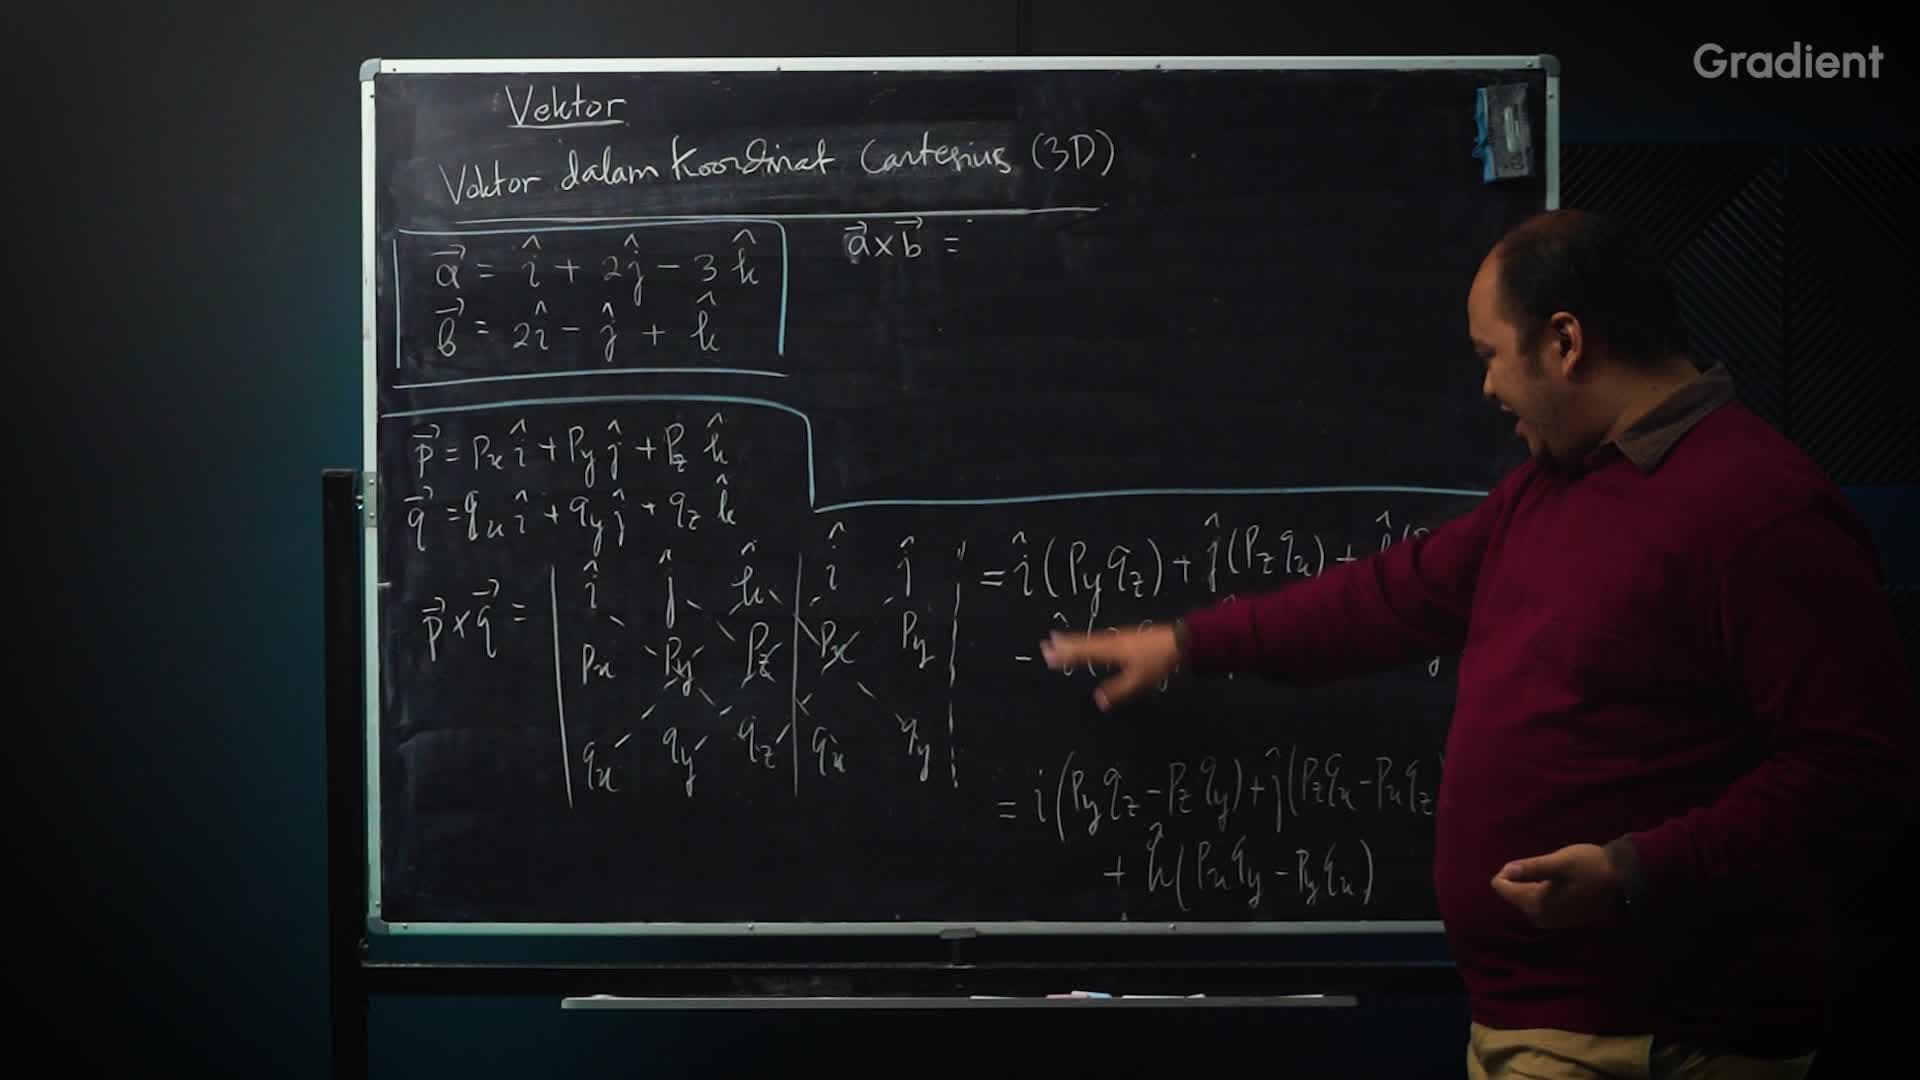 Gradient
Vektor
Vektor dalam Koordinat Cartesius (3D)
a⃗ = î + 2ĵ - 3k̂
b⃗ = 2î - ĵ + k̂
a⃗ x b⃗ =
p⃗ = Pxî + Pyĵ + Pzk̂
q⃗ = qxî + qyĵ + qzk̂
p⃗ x q⃗ =
î ĵ k̂ î ĵ
Px Py Pz Px Py
qx qy qz qx qy
= î(Pyqz) + ĵ(Pzqx) + k̂(
-
= i(Pyqz - Pzqy) + ĵ(Pzqx - Pxqz
+ k̂(Pxqy - Pyqx)